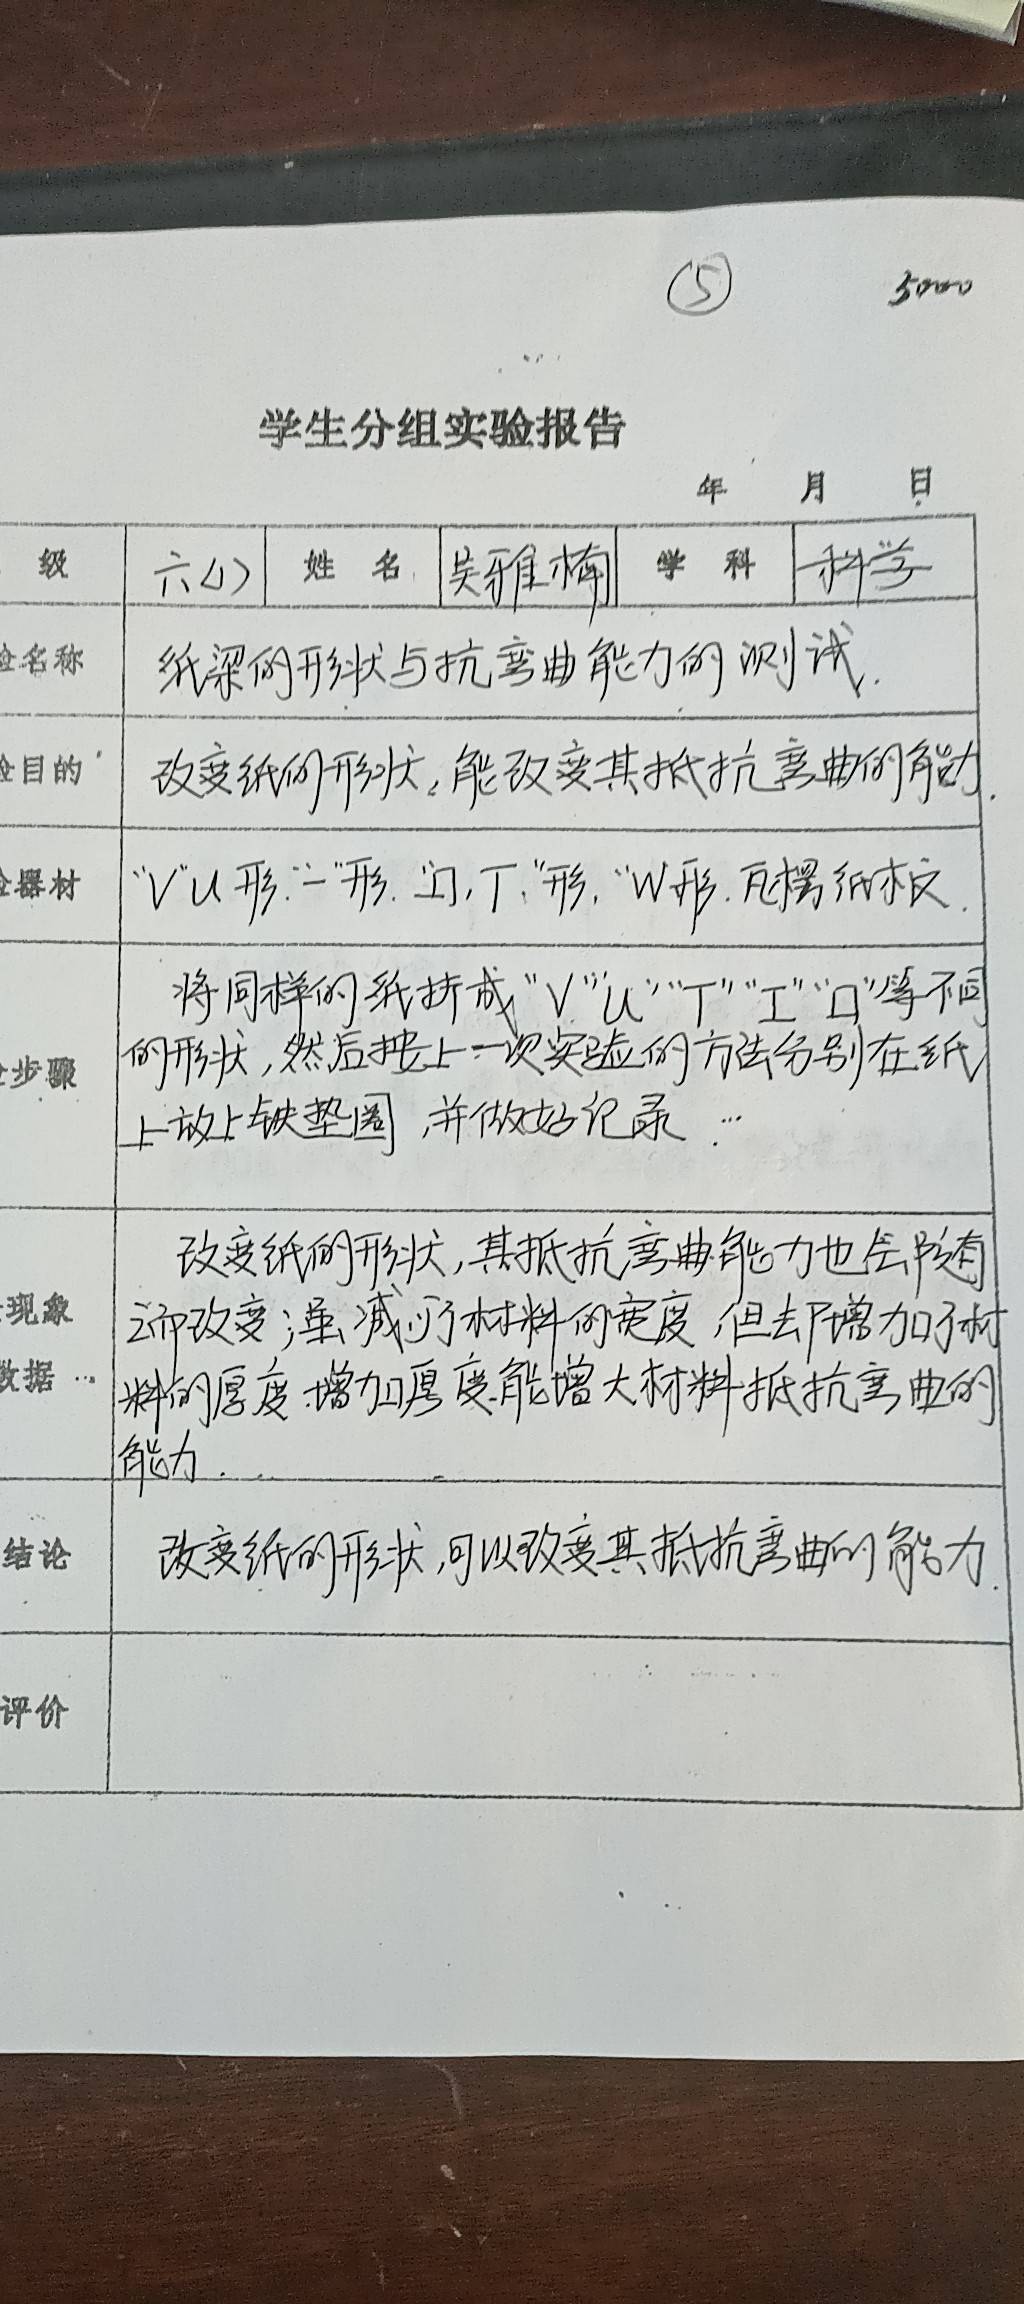 ⑤ 5000
学生分组实验报告
年 月 日
级 六(1) 姓名 吴雅梅 学科 科学
验名称 纸梁的形状与抗弯曲能力的测试.
验目的 改变纸的形状,能改变其抵抗弯曲的能力.
器材 "V"U形."一"形."口,T,"形,"W形.瓦楞纸板.
将同样的纸折成"V""U""T""工""口"等不同
步骤 的形状,然后按上一次实验的方法分别在纸
上放上铁垫圈,并做好记录…
改变纸的形状,其抵抗弯曲能力也会随着
现象 之而改变;虽减少了材料的宽度,但却增加了材
数据 料的厚度.增加厚度能增大材料抵抗弯曲的
能力.
结论 改变纸的形状,可以改变其抵抗弯曲的能力.
评价